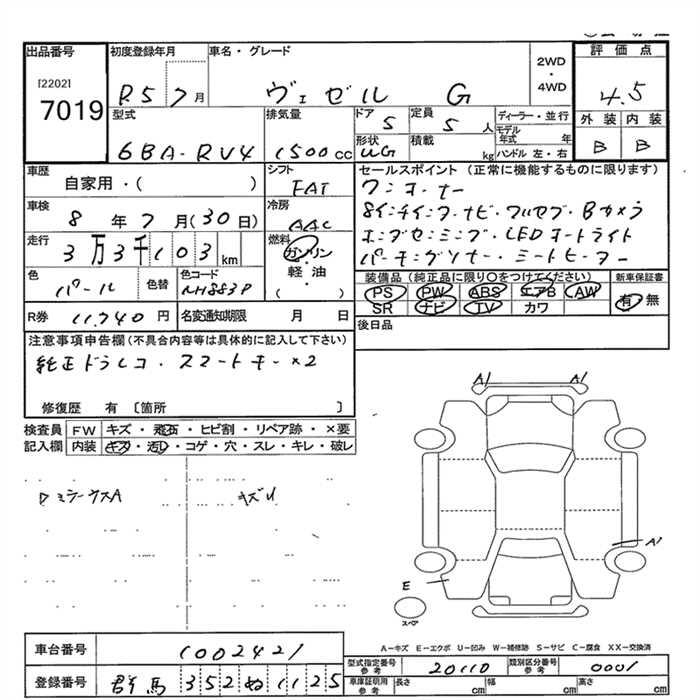 出品番号
[2202]
7019
初度登録年月
R5 7月
車名・グレード
ヴェゼル G
2WD
・
4WD
評価点
4.5
外装 内装
B B
型式
6BA-RV4
排気量
1500cc
ドア
5
定員
5人
形状
積載
kg
ディーラー・並行
モデル年式 年
ハンドル 左・右
車歴
自家用・( )
シフト
FAT
車検
8年7月(30日)
冷房
AAC
走行
3万3千103km
燃料
ガソリン
・
軽油
( )
色
パール
色替
色コード
NH883P
R券 11,740円
名変通知期限 月 日
セールスポイント(正常に機能するものに限ります)
ワンオーナー
8インチインターナビ・フルセグ・Bカメラ
ホンダセンシング・LEDオートライト
パーキングソナー・シートヒーター
装備品(純正品に限り○をつけてください)
PS PW ABS エアB AW
SR ナビ TV カワ
新車保証書
有 無
後日品
注意事項申告欄(不具合内容等は具体的に記入して下さい)
純正ドラレコ・スマートキー×2
修復歴 有 〔箇所 〕
検査員 FW キズ・飛石・ヒビ割・リペア跡・×要
記入欄 内装 キズ・汚レ・コゲ・穴・スレ・キレ・破レ
キズU
A1 A1
A1
E
スペア
A-キズ E-エクボ U-凹み W-補修跡 S-サビ C-腐食 XX-交換済
車台番号 1002421
登録番号 群馬 352 ぬ 1125
型式指定番号 参考 20110
類別区分番号 参考 0001
車庫証明用 参考 長さ cm 幅 cm 高さ cm